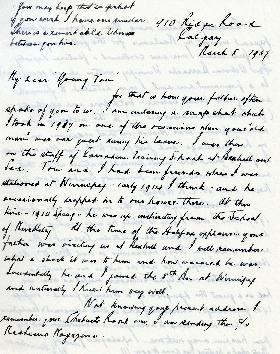 You may keep this snapshot
if you wish. I have one under
between you two.
410 Ridge Road
Calgary
March 5 1967
My dear Young Tom
for that is how your father often
spoke of you to us. I am enclosing a snapshot which
I took in 1917 on one of the occasions when your old
man was our guest during his leave. I was then
on the staff of Canadian Training School at Bexhill on
Sea. Tom and I had been friends when I was
stationed at Winnipeg - early 1914 I think - and he
occasionally stopped in to our house there. At this
time - 1914 - he was up
of Musketry. At the time of the Halifax explosion your
father was visiting us at Bexhill and I well remember
what a shock it was to him and how worried he was.
Incidentally he and I joined the 8th Bn at Winnipeg
and naturally I knew him very well.
Not knowing your present address I
remember your and am sending this c/o
Maclean's Magazine.